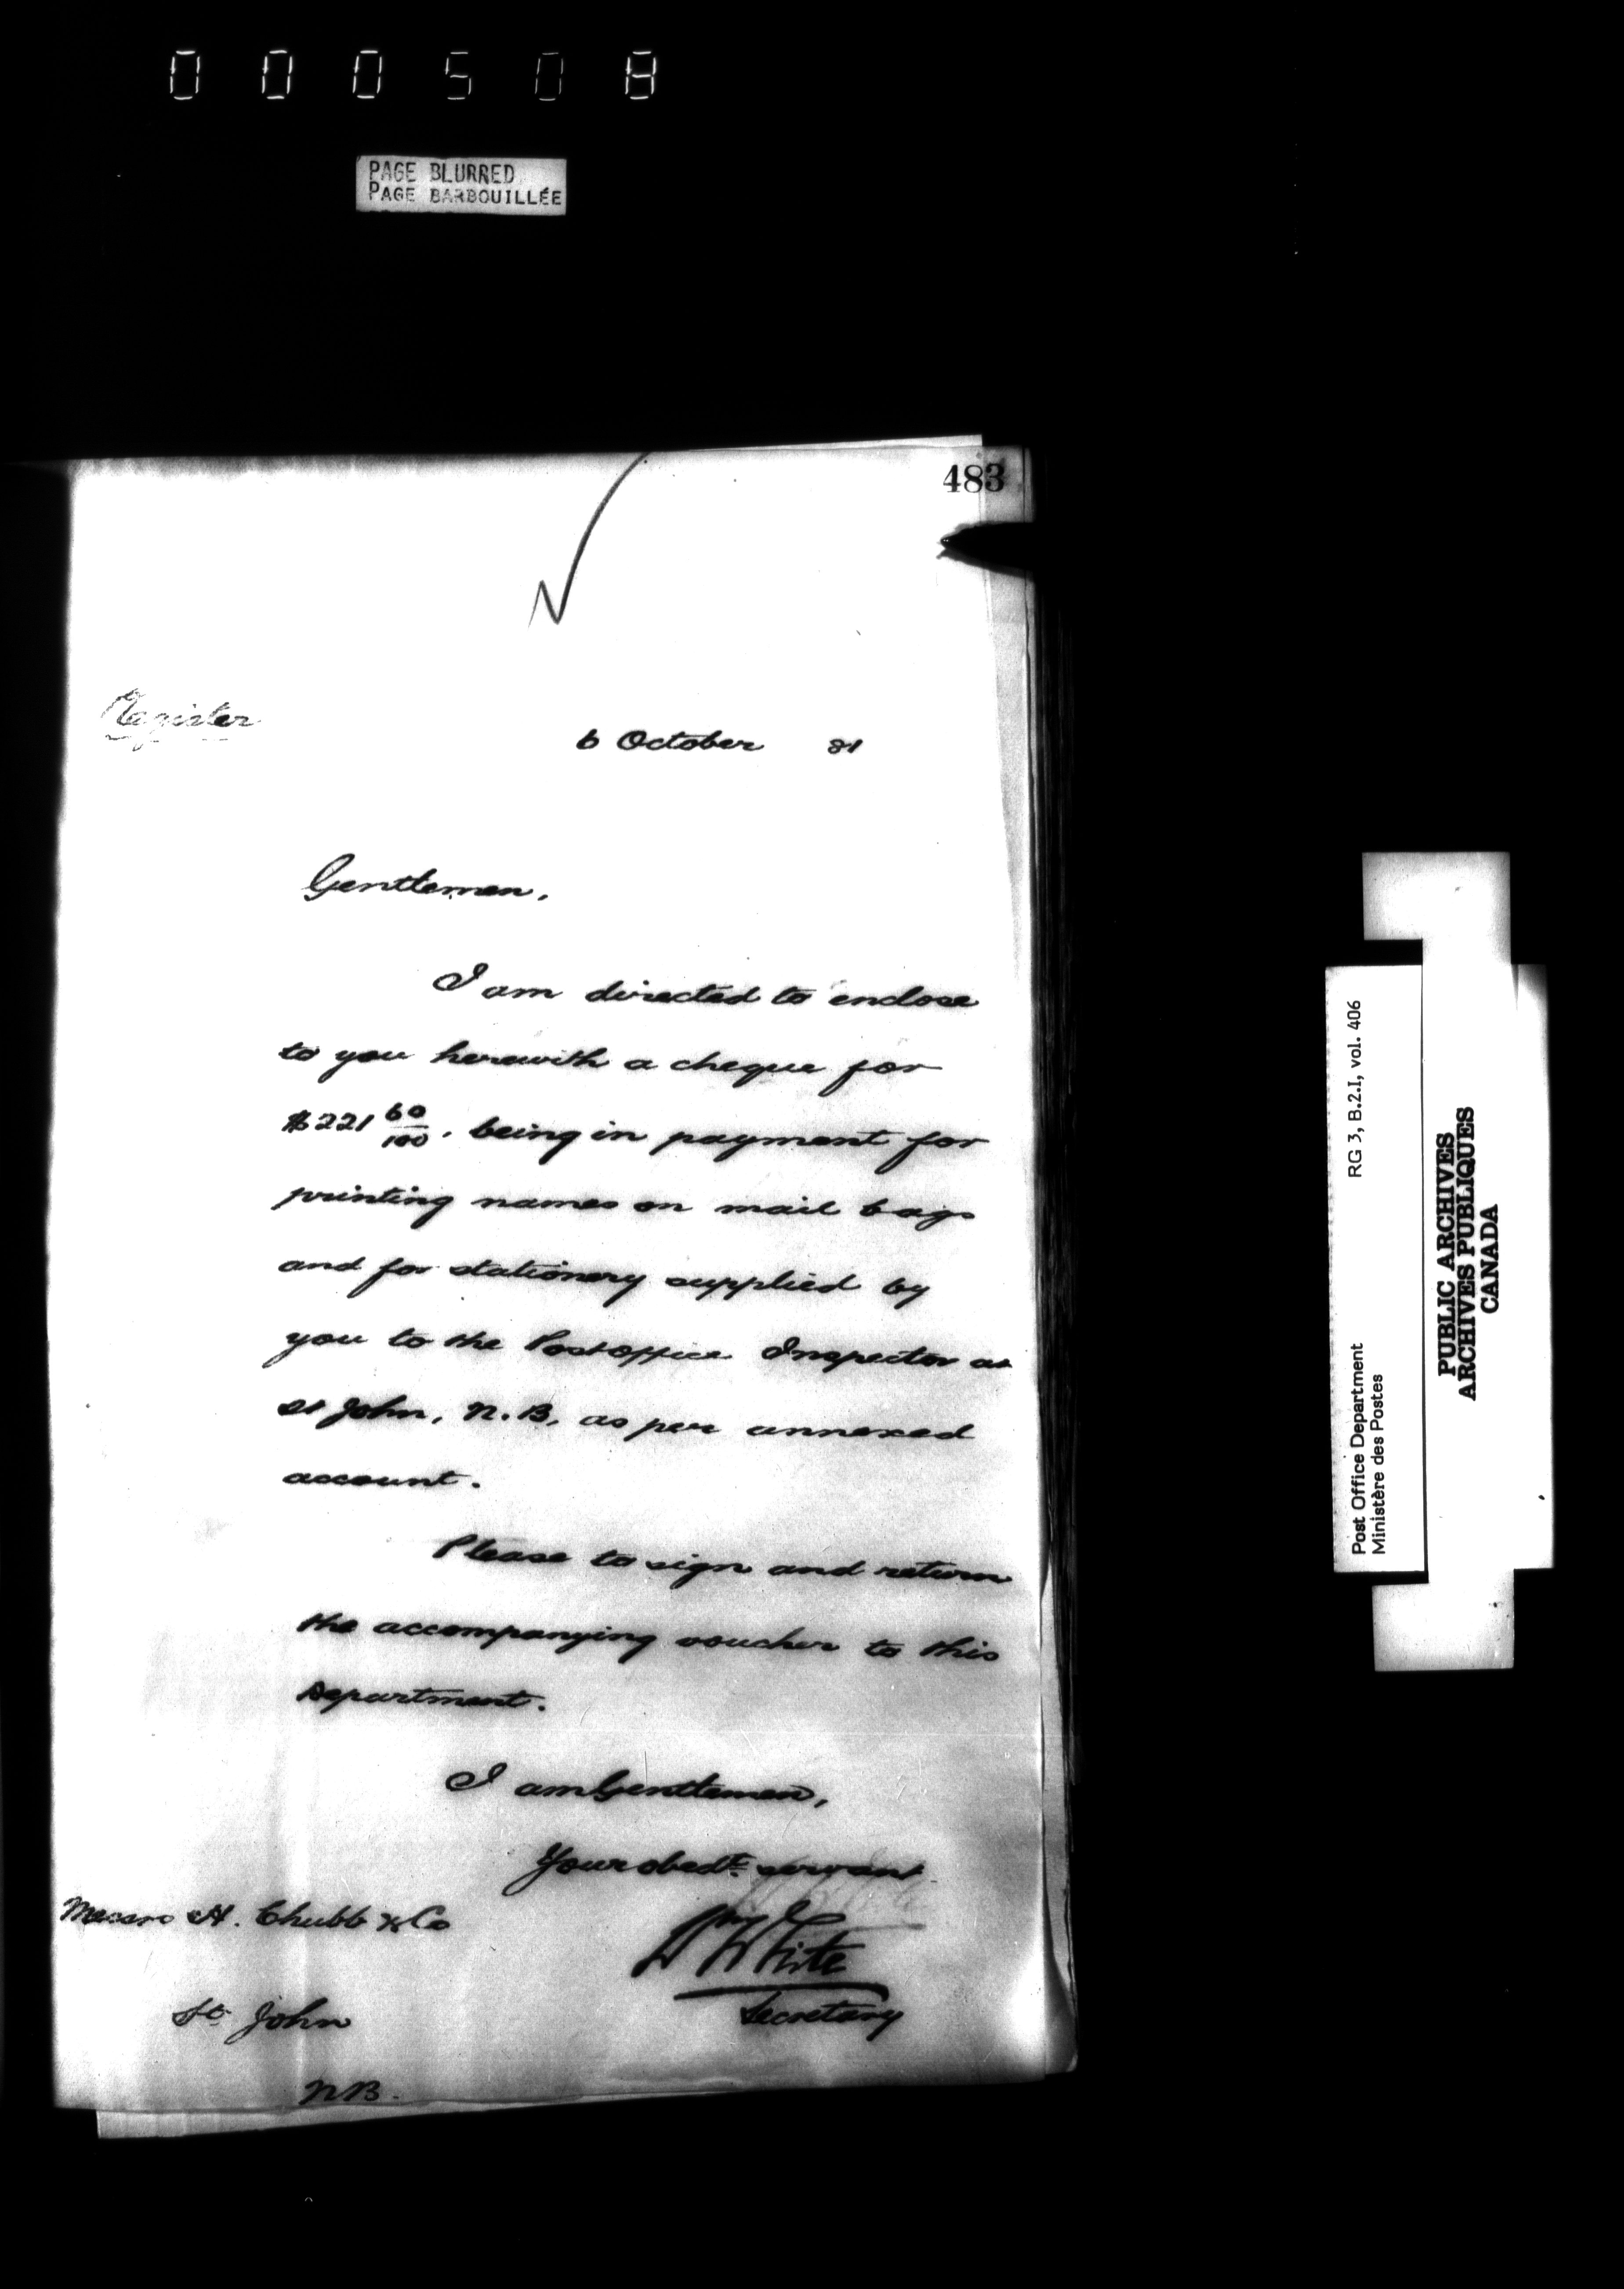 000508
PAGE BLURRED
PAGE BARBOUILLÉE
483
Register
6 October 81
Gentlemen,
I am directed to enclose
to you herewith a cheque for
$221 60/100, being in payment for
printing names on mail bags
and for stationery supplied by
you to the Post office Inspector at
St John, N.B, as per annexed
account.
Please to sign and return
the accompanying voucher to this
Department.
I am Gentlemen,
Your obedt. servant
Wm White
Secretary
Messrs H. Chubb & Co
St. John
NB.
RG 3, B.2.I, vol. 406
Post Office Department
Ministère des Postes
PUBLIC ARCHIVES
ARCHIVES PUBLIQUES
CANADA